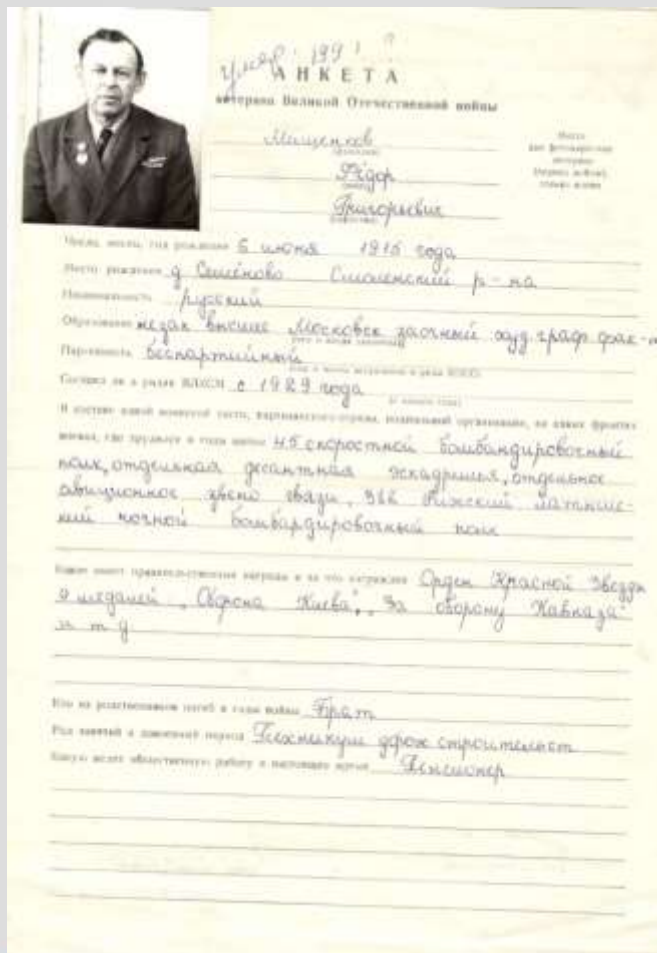 умер 199 ?
АНКЕТА
ветерана Великой Отечественной войны
Мищенков
Фёдор
Григорьевич
Место
для фотокарточки
ветерана
Число, месяц, год рождения 5 июня 1915 года
Место рождения д Семёново Смоленский р-на
Национальность русский
Образование незак высшее Московск заочный худ граф фак-т
Партийность беспартийный
Состоял ли в рядах ВЛКСМ с 1929 года
В составе какой воинской части, партизанского отряда, подпольной организации, на каких фронтах
воевал, где трудился в годы войны 45 скоростной бомбандировочный
полк, отдельная десантная эскадрилья, отдельное
авиционное звено связи, Рижский латышс-
кий ночной бомбардировочный полк
Какие имеет правительственные награды и за что награжден Орден Красной Звезды
9 медалей „Оборона Киева", „За оборону Кавказа"
и т д
Кто из родственников погиб в годы войны Брат
Род занятий в довоенный период Техникум дорож строительст
Какую ведет общественную работу в настоящее время Пенсионер